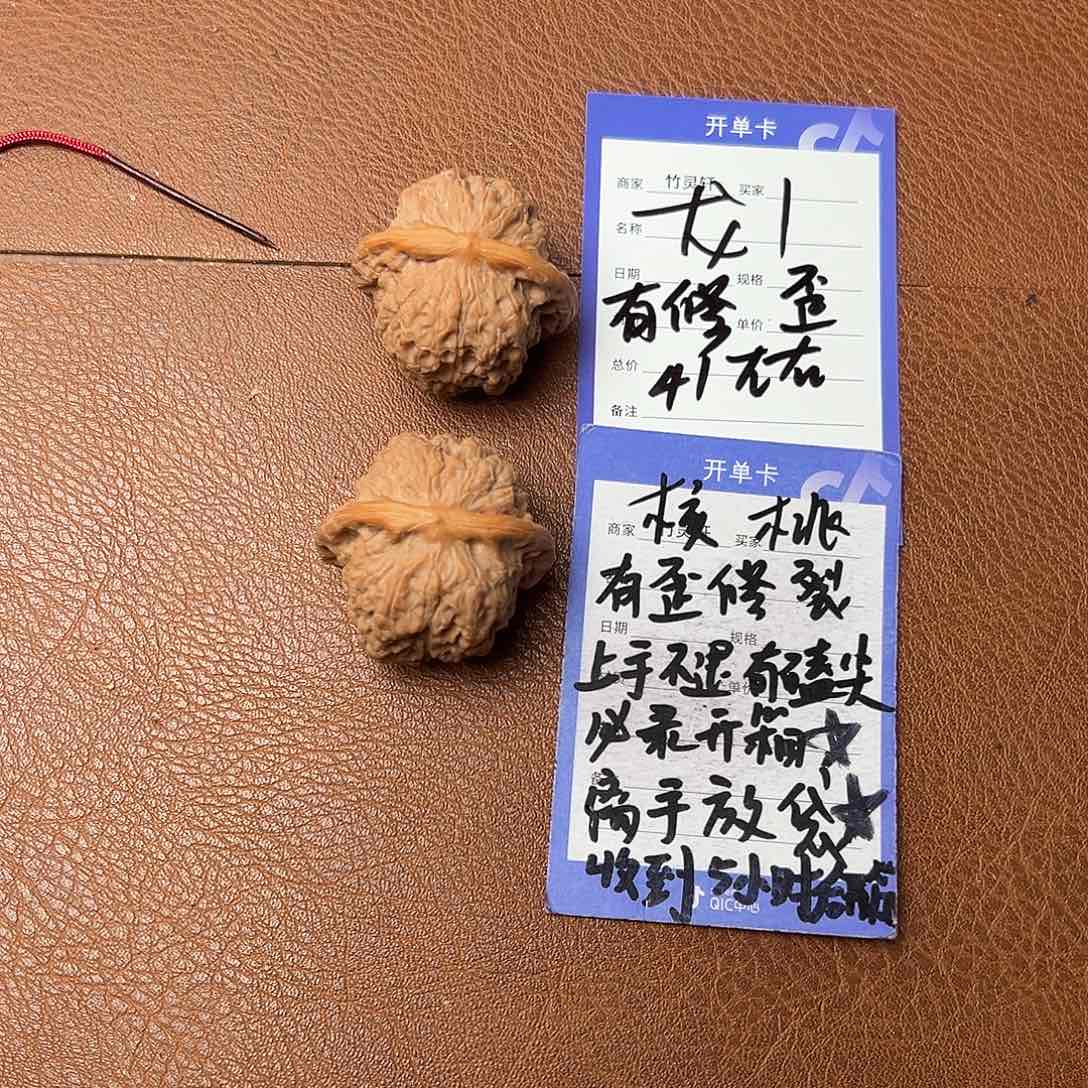 开单卡
商家 竹灵轩 买家
名称
日期 规格
有修 歪
单价
总价
41左右
备注
开单卡
核桃
商家 买家
有歪修裂
日期 规格
上手不退 有磕尖
单价
必录开箱☆
离手放袋★
收到5小时
QIC中心